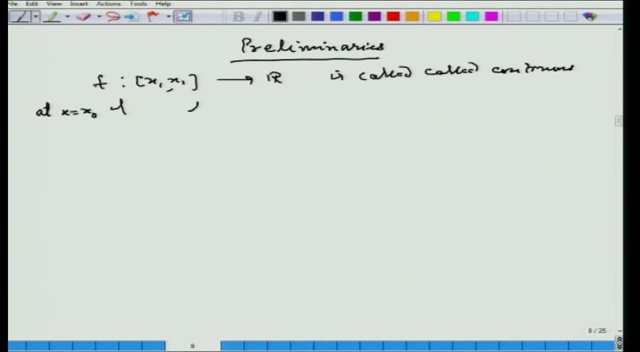 File Edit View Insert Actions Tools Help
Preliminaries
f : [x₁, x₁] ⟶ ℝ is called called continuous
at x=x₀ if
8 / 25
8